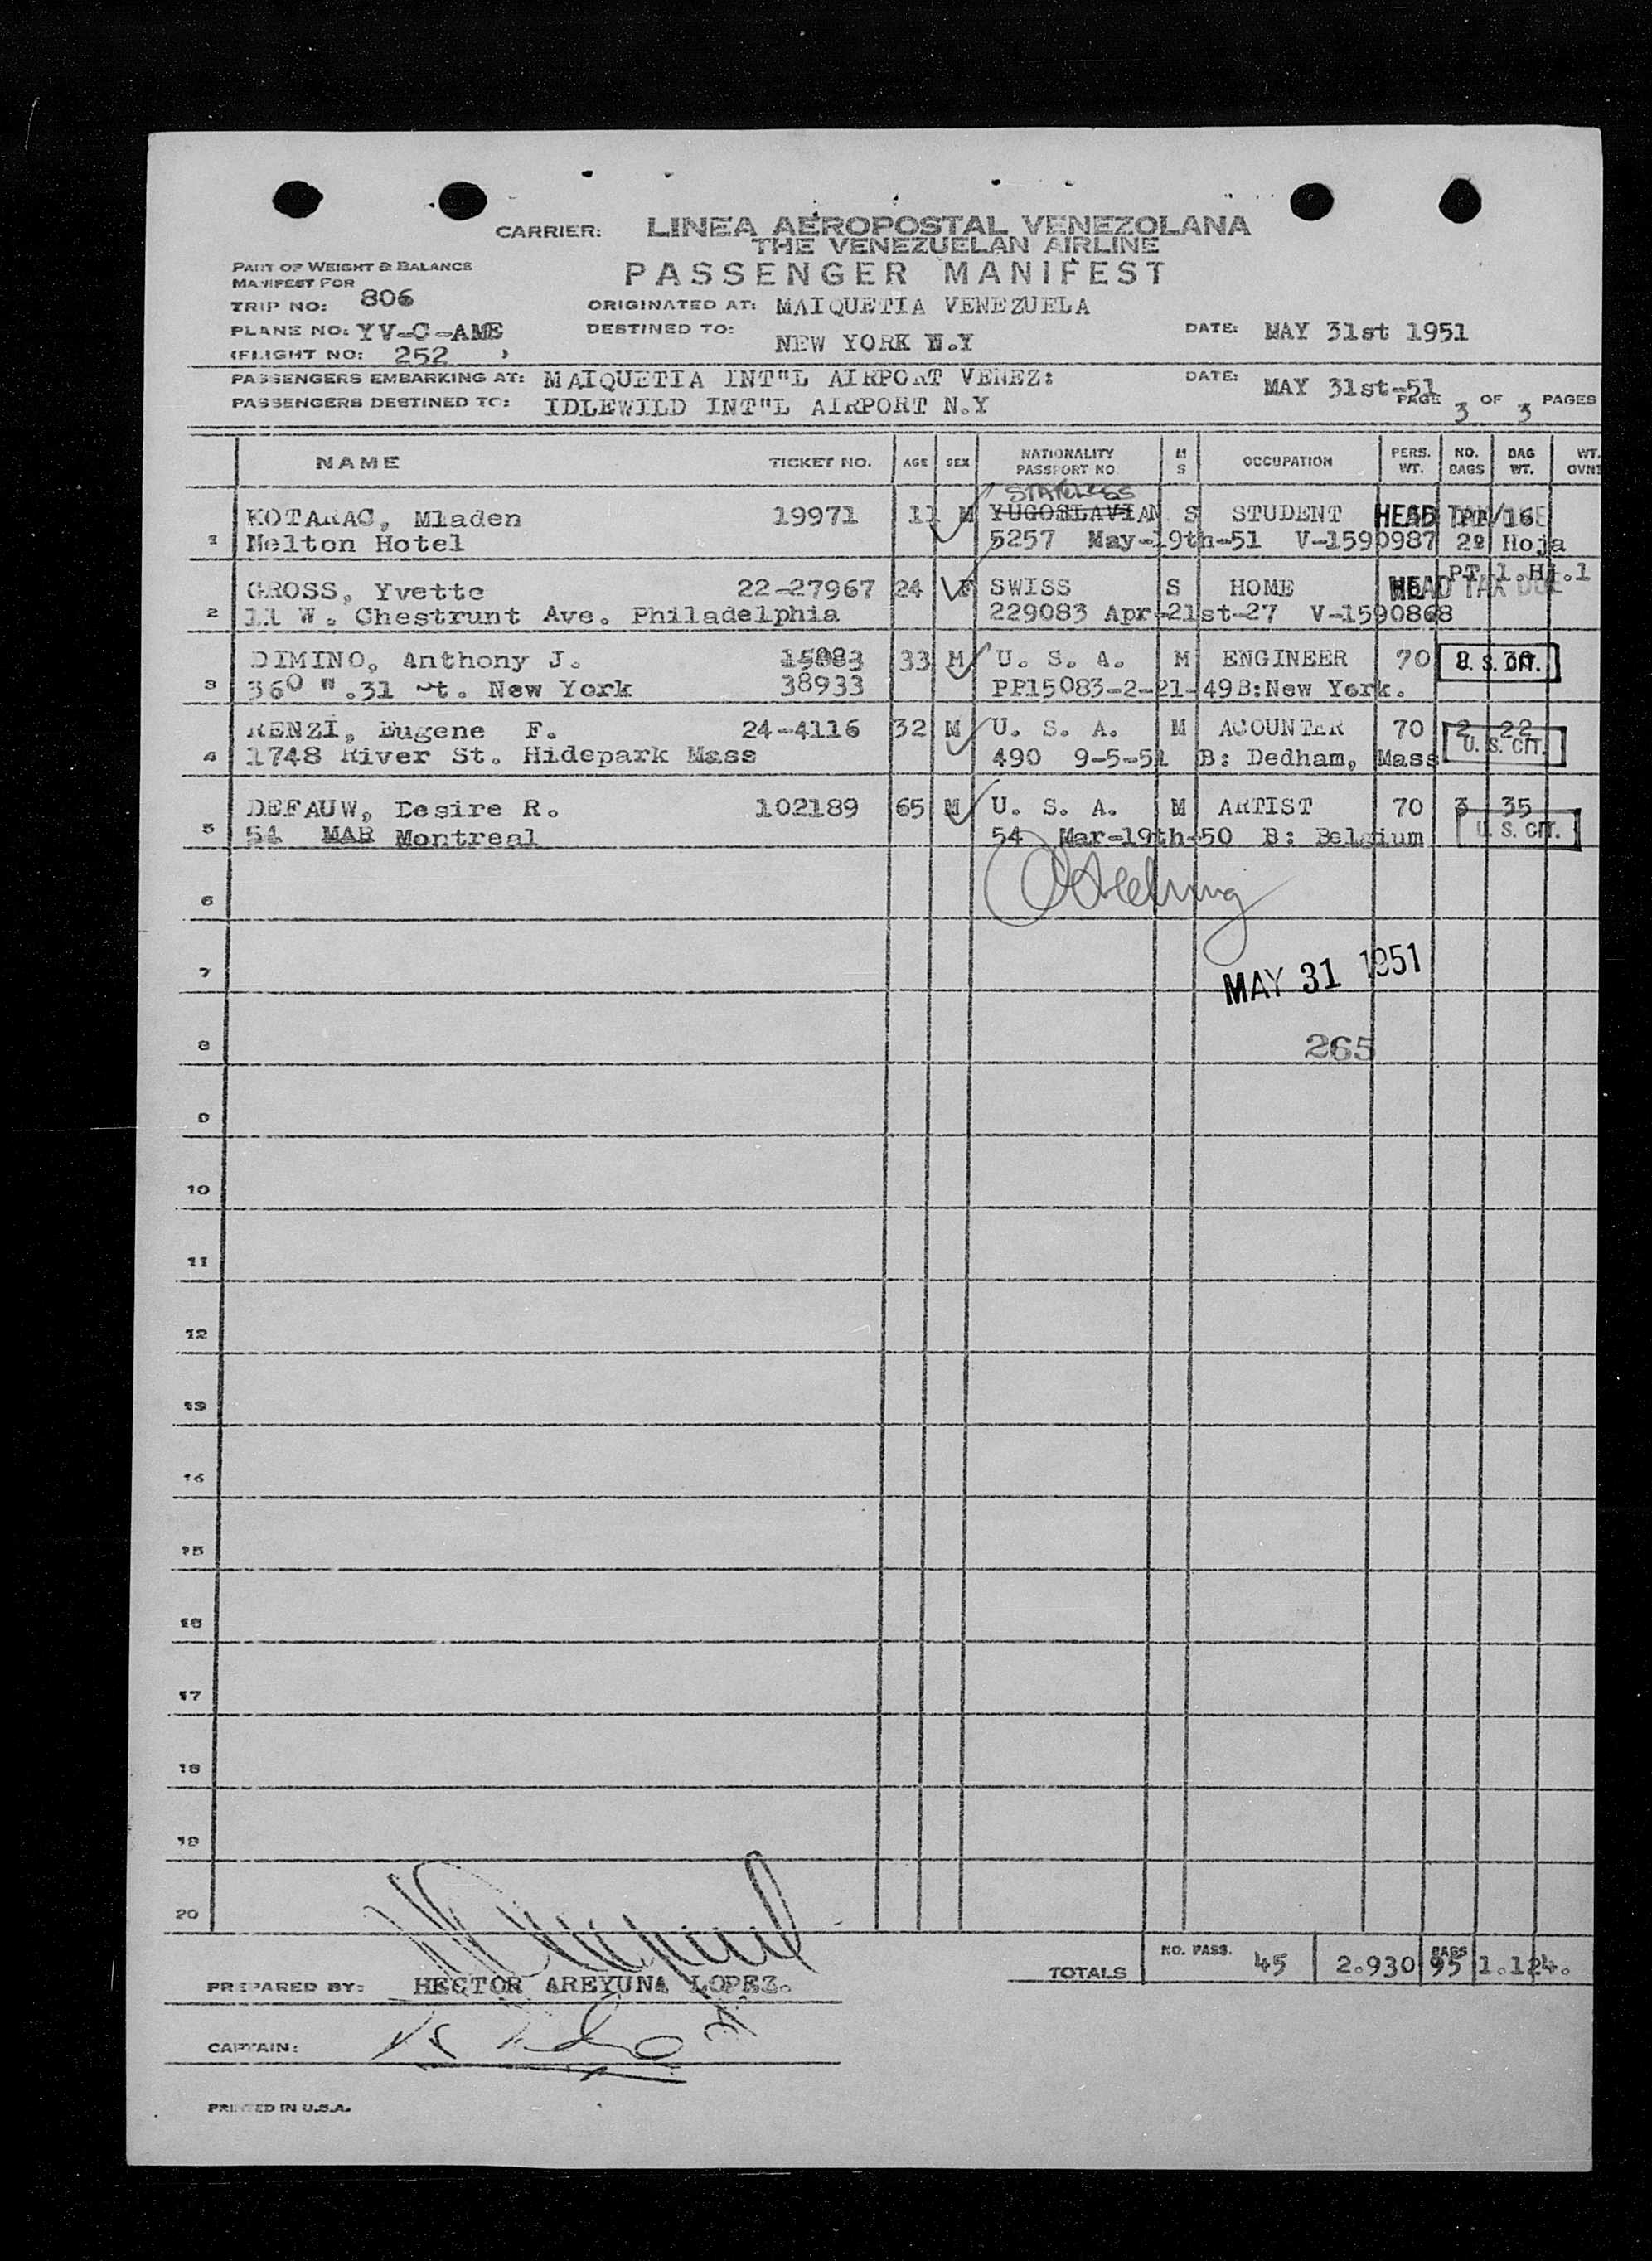 CARRIER: LINEA AEROPOSTAL VENEZOLANA
THE VENEZUELAN AIRLINE
PASSENGER MANIFEST
PART OF WEIGHT & BALANCE
MANIFEST FOR
TRIP NO: 806
ORIGINATED AT: MAIQUETIA VENEZUELA
PLANE NO: YV-C-AME
DESTINED TO: NEW YORK N.Y
DATE: MAY 31st 1951
(FLIGHT NO: 252 )
PASSENGERS EMBARKING AT: MAIQUETIA INT"L AIRPORT VENEZ:
DATE: MAY 31st-51
PASSENGERS DESTINED TO: IDLEWILD INT"L AIRPORT N.Y
PAGE 3 OF 3 PAGES
NAME TICKET NO. AGE SEX NATIONALITY PASSPORT NO M S OCCUPATION PERS. WT. NO. BAGS BAG WT. WT. OVN
STATELESS
KOTARAC, Mladen 19971 11 M YUGOSLAVIAN S STUDENT HEAD TAX
1 Melton Hotel 5257 May-19th-51 V-1590987 2º Hoja
PT 1.HJ.1
GROSS, Yvette 22-27967 24 F SWISS S HOME HEAD TAX DUE
2 11 W. Chestrunt Ave. Philadelphia 229083 Apr-21st-27 V-1590868
DIMINO, Anthony J. 15083 33 M U. S. A. M ENGINEER 70 U. S. CIT.
3 360 W.31 St. New York 38933 PP15083-2-21-49B:New York.
RENZI, Eugene F. 24-4116 32 M U. S. A. M ACOUNTER 70 2 22
4 1748 River St. Hidepark Mass 490 9-5-51 B: Dedham, Mass U. S. CIT.
DEFAUW, Desire R. 102189 65 M U. S. A. M ARTIST 70 3 35
5 54 MAR Montreal 54 Mar-19th-50 B: Belgium U. S. CIT.
6
7
MAY 31 1951
8 265
9
10
11
12
13
14
15
16
17
18
19
20
TOTALS NO. PASS. 45 2.930 BAGS 95 1.124.
PREPARED BY: HECTOR AREYUNA LOPEZ.
CAPTAIN:
PRINTED IN U.S.A.